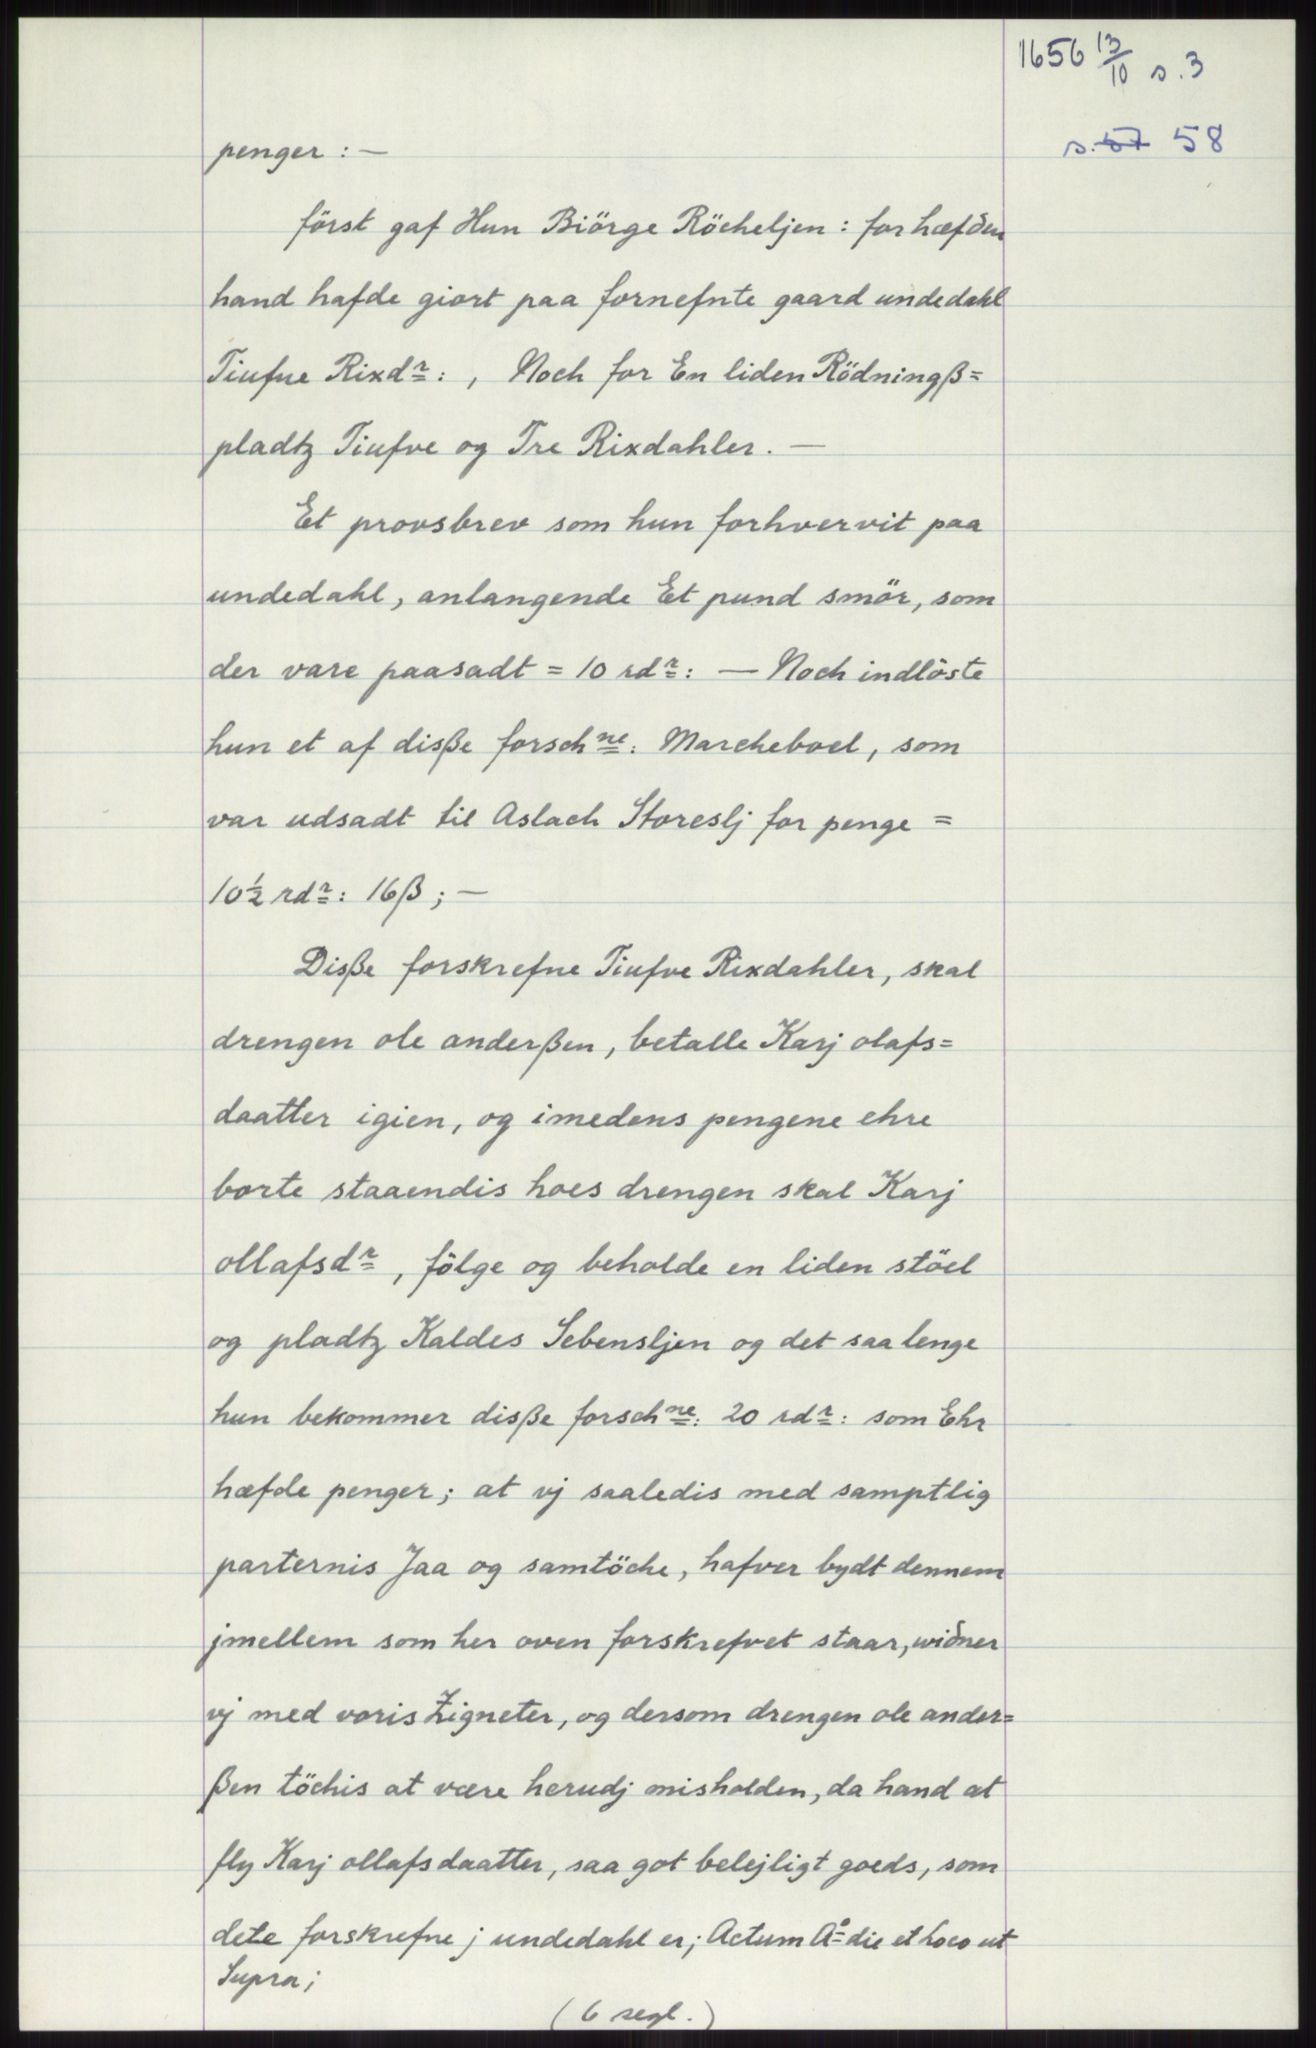 1656 13/10 s. 3
s. 57 58
penger : —
först gaf Hun Biörge Röcheljen : for hæfden
hand hafde giort paa fornefnte gaard undedahl
Tiufve Rixdr: , Noch for En liden Rödningß=
pladtz Tiufve og Tre Rixdahler. —
Et provsbrev som hun forhvervit paa
undedahl, anlangende Et pund smör, som
der vare paasadt = 10 rdr: — Noch indlöste
hun et af disße forschne: Marcheboel, som
var udsadt til Aslach Storeslj for penge =
10½ rdr: 16ß ; —
Disße forskrefne Tiufve Rixdahler, skal
drengen ole anderßen, betalle Karj olafs=
daatter igien, og imedens pengene ehre
borte staaendis hoes drengen skal Karj
ollafsdr , fölge og beholde en liden stöel
og pladtz Kaldes Sebensljen og det saa lenge
hun bekommer disße forschne: 20 rdr: som Ehr
hæfde penger; at vj saaledis med samptlig
parternis Jaa og samtöche, hafver bydt dennem
jmellem som her oven forskrefvet staar, widner
vj med voris Zigneter, og dersom drengen ole ander=
ßen töchis at være herudj misholden, da hand at
fly Karj ollafsdaatter, saa got belejligt goeds, som
dete forskrefne j undedahl er; Actum Aº die et Loco ut
Supra ;
( 6 segl. )